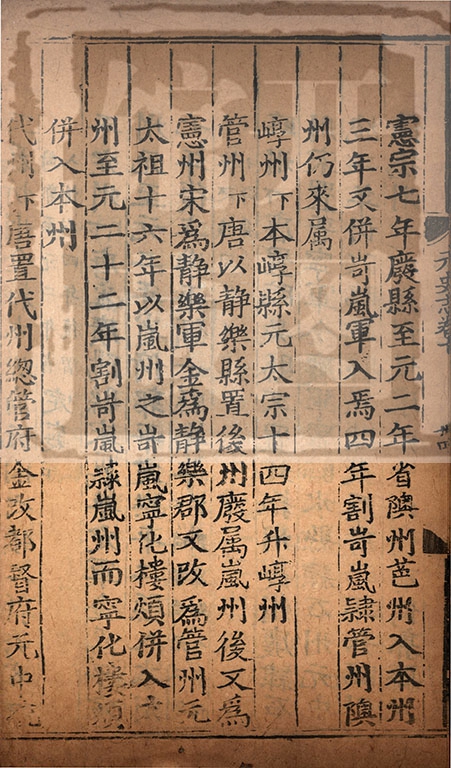 憲宗七年廢縣至元二年省隩州芭州入本州
三年又併岢嵐軍入焉四年割岢嵐隸管州隩
州仍來属
崞州下本崞縣元太宗十四年升崞州
管州下唐以静樂縣置後州廢属嵐州後又爲
憲州宋爲静樂軍金爲静樂郡又改爲管州元
太祖十六年以嵐州之岢嵐寧化樓煩併入本
州至元二十二年割岢嵐隸嵐州而寧化樓煩
併入本州
代州下唐置代州總管府金改都督府元中統